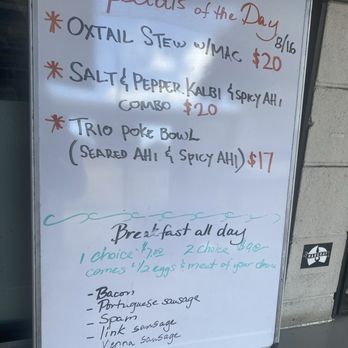 Specials of the Day
8/16
* OXTAIL STEW W/MAC $20
* SALT & PEPPER, KALBI & SPICY AHI
COMBO $20
* TRIO POKE BOWL
(SEARED AHI & SPICY AHI) $17
Breakfast all day
1 choice 2 choice
comes w/2 eggs & meat of your choice
- Bacon
- Portuguese sausage
- Spam
- link sausage
- Vienna sausage